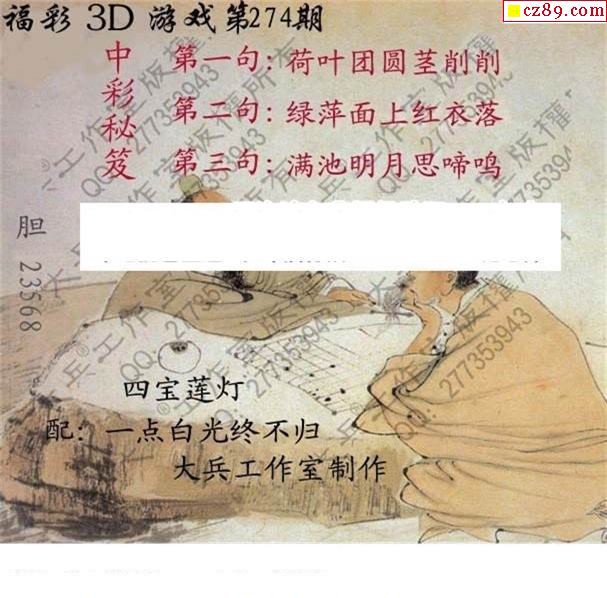 福彩 3D 游戏第274期
cz89.com
中彩秘笈
第一句：荷叶团圆茎削削
第二句：绿萍面上红衣落
第三句：满池明月思啼鸣
胆 23568
四宝莲灯
配：一点白光终不归
大兵工作室制作
大兵工作室版权所有
QQ：277353943